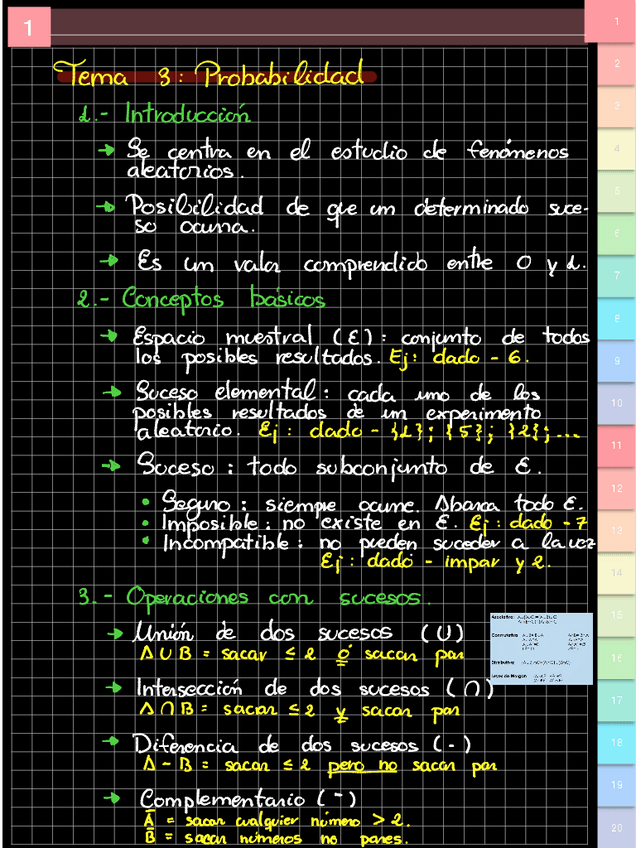 1
Tema 3: Probabilidad
1.- Introducción
→ Se centra en el estudio de fenómenos
aleatorios.
→ Posibilidad de que un determinado suce-
so ocurra.
→ Es un valor comprendido entre 0 y 1.
2.- Conceptos básicos
→ Espacio muestral (E): conjunto de todos
los posibles resultados. Ej: dado - 6.
→ Suceso elemental: cada uno de los
posibles resultados de un experimento
aleatorio. Ej: dado - {1}; {5}; {2}; ...
→ Suceso: todo subconjunto de E.
• Seguro: siempre ocurre. Abarca todo E.
• Imposible: no existe en E. Ej: dado - 7
• Incompatible: no pueden suceder a la vez
Ej: dado - impar y 2.
3.- Operaciones con sucesos.
→ Unión de dos sucesos (U)
A U B = sacar ≤ 2 ó sacar par
→ Intersección de dos sucesos (∩)
A ∩ B = sacar ≤ 2 y sacar par
→ Diferencia de dos sucesos (-)
A - B = sacar ≤ 2 pero no sacar par
→ Complementario (¯)
Ā = sacar cualquier número > 2.
B̄ = sacar números no pares.
Asociativa
Conmutativa
Distributiva
Leyes de Morgan
1
2
3
4
5
6
7
8
9
10
11
12
13
14
15
16
17
18
19
20